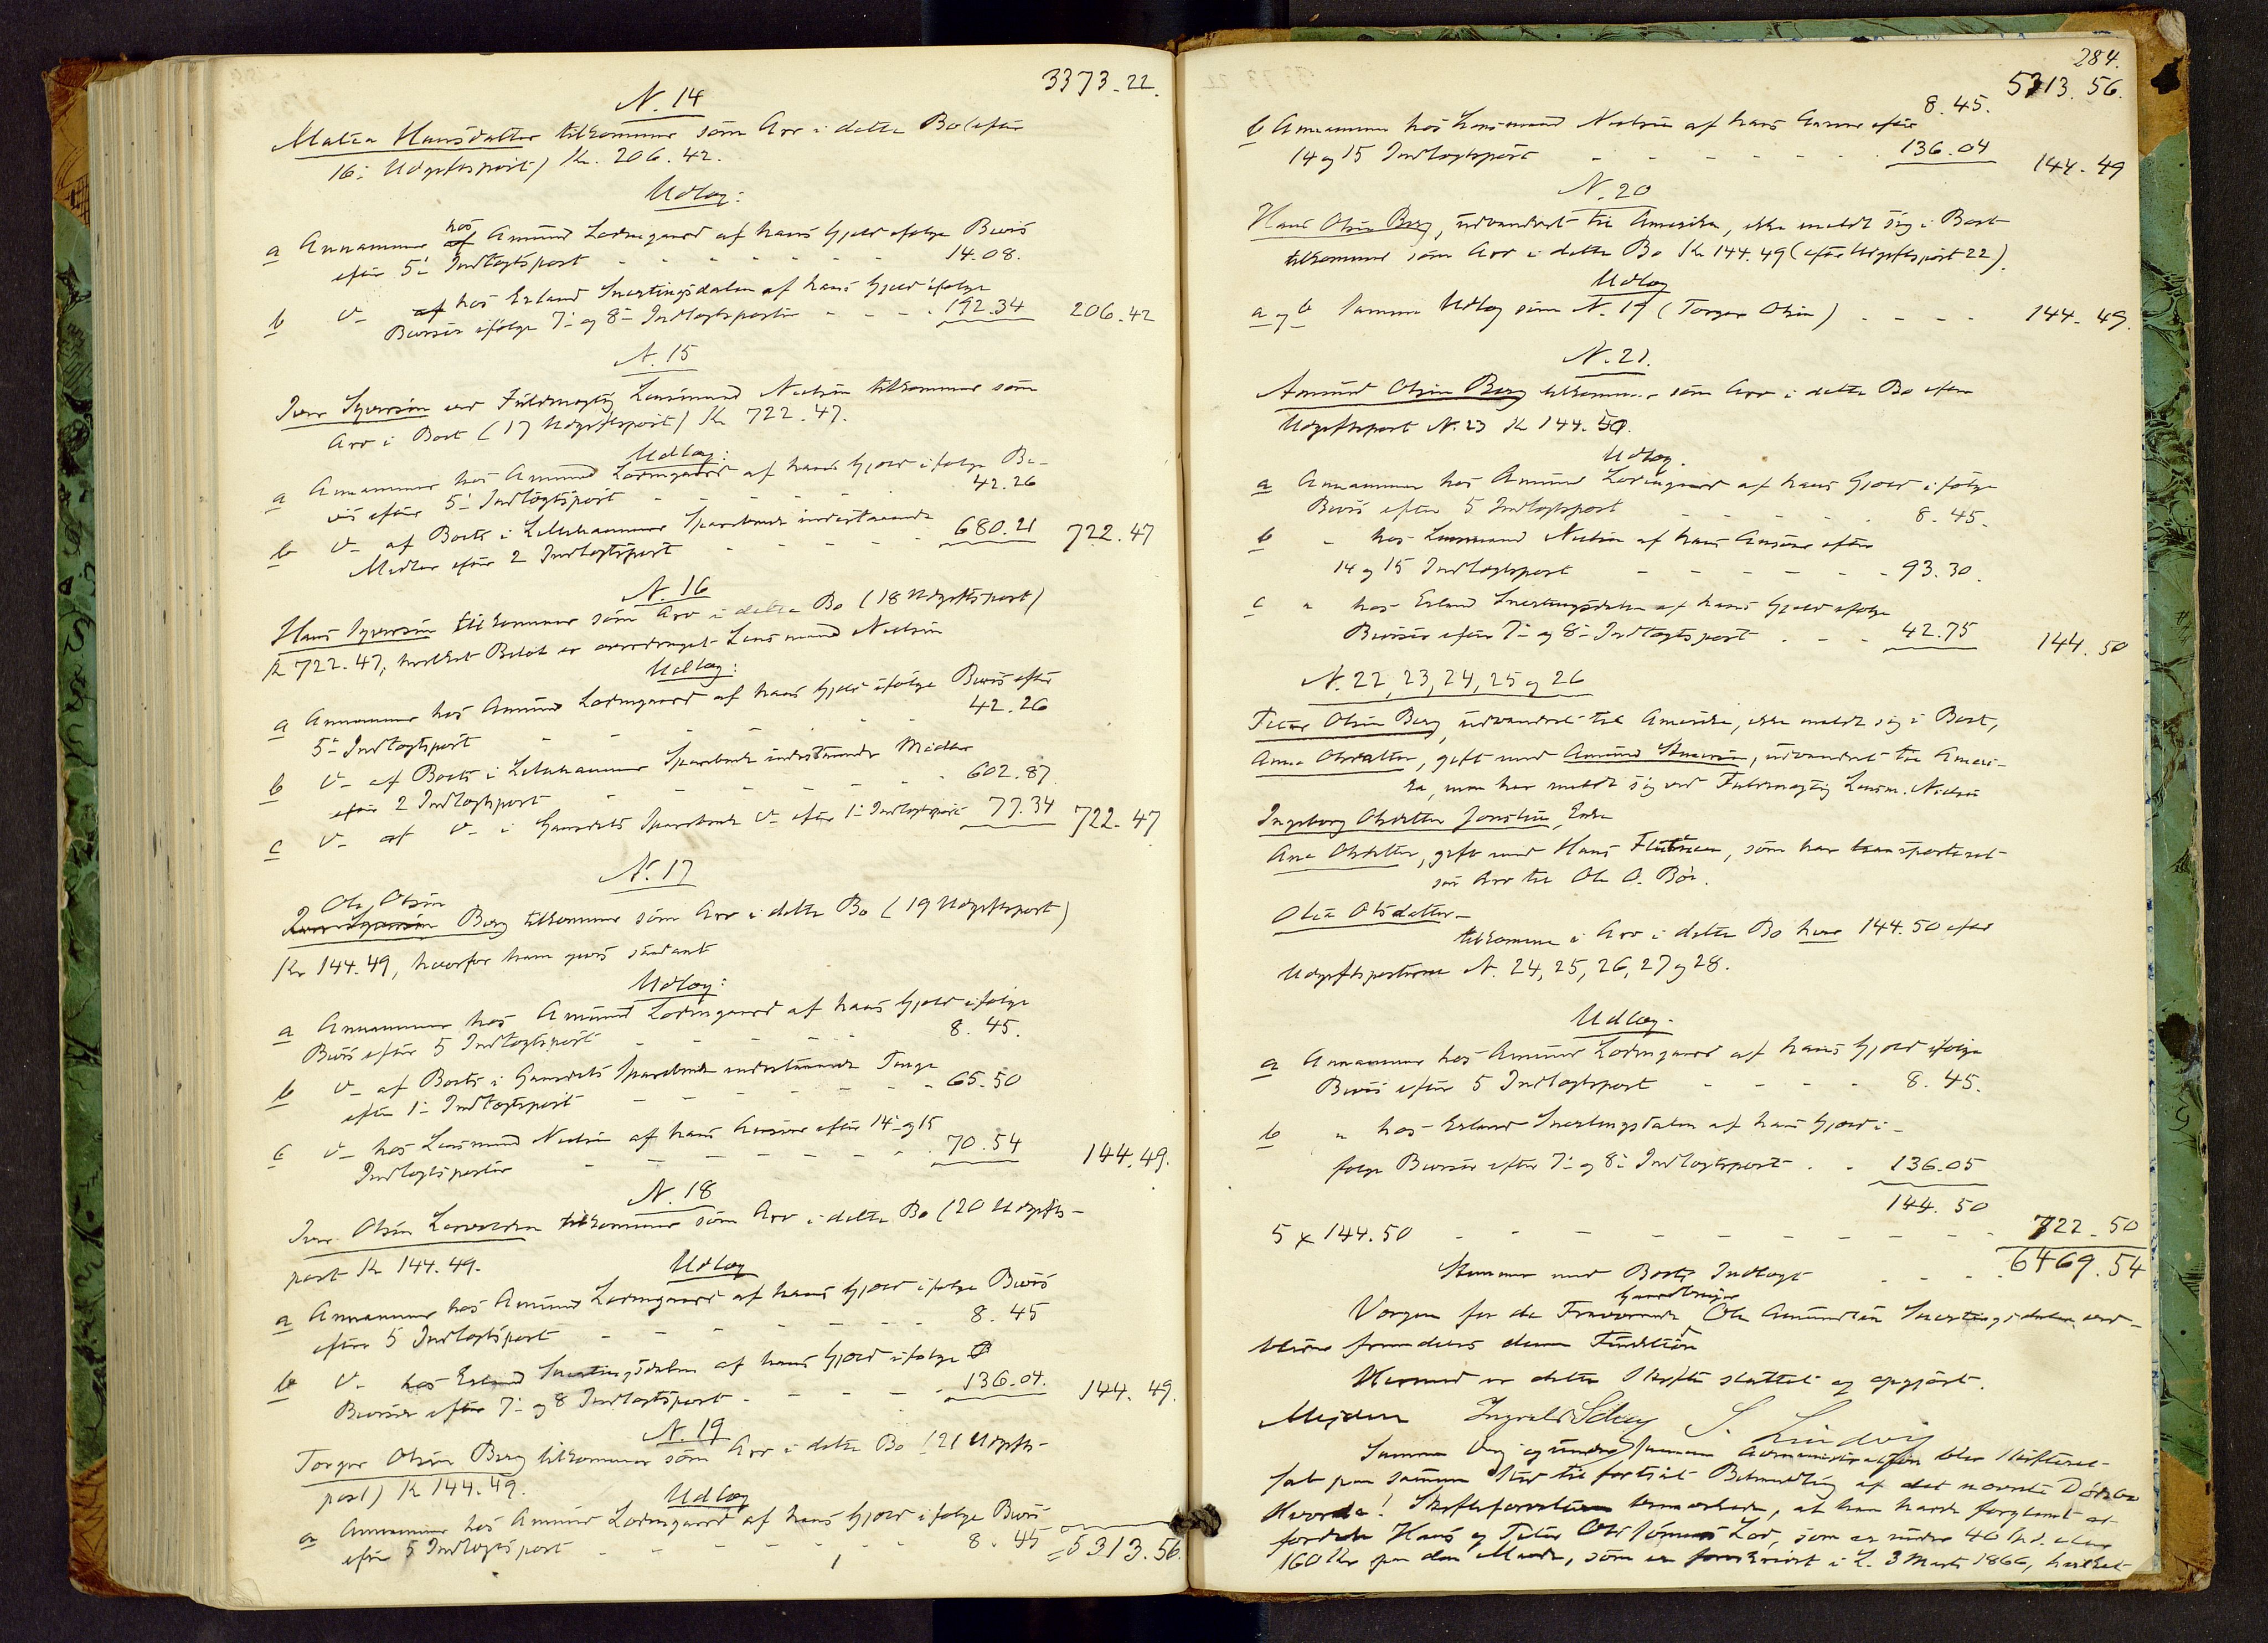 3373.22.
N. 14
Malia Hansdatter tilkommer som Arv i dette Bo (efter
16- Udgiftspost) Kr. 206.42.
Udlæg:
a Annammer hos af Amund Lodingaard af hans Gjæld ifølge Bevis
efter 5- Indtægtspost - - - - - - 14.08.
b D- af hos Erland Svartingsdalen af hans Gjæld ifølge
Beviser ifølge 7- og 8- Indtægtsposter - - - 192.34 206.42
N. 15
Iver Syversen ved Fuldmægtig Lensmand Nielsen tilkommer som
Arv i Boet (17 Udgiftspost) Kr 722.47.
Udlæg:
a Annammer hos Amund Lodingaard af hans Gjæld ifølge Be-
vis efter 5- Indtægtspost - - - - - - 42.26
b D- af Boets i Lillehammer Sparebank indestaaende
Midler efter 2 Indtægtspost - - - - - 680.21 722.47
N. 16
Hans Syversen tilkommer som Arv i dette Bo (18 Udgiftspost)
Kr 722.47, hvilket Beløb er overdraget Lensmand Nielsen
Udlæg:
a Annammer hos Amund Lodingaard af hans Gjæld ifølge Bevis efter
5- Indtægtspost - - - - - - 42.26
b D- af Boets i Lillehammer Sparebank indestaaende Midler
efter 2 Indtægtspost - - - - - - 602.87.
c D- af D- i Gausdals Sparebank D- efter 1- Indtægtspost 77.34 722.47
N. 17
Ole Olsen
Iver Syversen Berg tilkommer som Arv i dette Bo (19 Udgiftspost)
Kr 144.49, hvorfor ham gives saadant
Udlæg:
a Annammer hos Amund Lodingaard af hans Gjæld ifølge
Bevis efter 5 Indtægtspost - - - - - 8.45.
b D- af Boets i Gausdals Sparebank indestaaende Penge
efter 1- Indtægtspost - - - - - - 65.50
c D- hos Lensmand Nielsen af hans Ansvar efter 14- og 15
Indtægtsposter - - - - - - - 70.54 144.49.
N. 18
Iver Olsen tilkommer som Arv i dette Bo (20 Udgifts-
post Kr 144.49.
Udlæg
a Annammer hos Amund Lodingaard af hans Gjæld ifølge Bevis
efter 5 Indtægtspost - - - - - - - 8.45
b D- hos Erland Svartingsdalen af hans Gjæld ifølge
Beviser efter 7- og 8 Indtægtspost - - - - - 136.04. 144.49.
N. 19
Torger Olsen Berg tilkommer som Arv i dette Bo (21 Udgifts-
post) Kr 144.49.
Udlæg
a Annammer hos Amund Lodingaard af hans Gjæld ifølge Bevis
efter 5 Indtægtspost - - - - - - - 8.45 5313.56.
284.
5313.56.
b Annammer hos Lensmand Nielsen af hans Ansvar efter 8.45.
14 og 15 Indtægtspost - - - - - - 136.04 144.49
N. 20
Hans Olsen Berg, udvandret til Amerika, ikke meldt sig i Boet
tilkommer som Arv i dette Bo Kr 144.49 (efter Udgiftspost 22).
Udlæg
a og b Samme Udlæg som N. 19 (Torger Olsen) - - - - 144.49.
N. 21.
Amund Olsen Berg tilkommer som Arv i dette Bo efter
Udgiftspost N. 23 Kr 144.50.
Udlæg.
a Annammer hos Amund Lodingaard af hans Gjæld ifølge
Bevis efter 5 Indtægtspost - - - - - 8.45.
b " hos Lensmand Nielsen af hans Ansvar efter
14 og 15 Indtægtspost - - - - - - 93.30.
c " hos Erland Svartingsdalen af hans Gjæld ifølge
Beviser efter 7- og 8- Indtægtspost - - - 42.75 144.50
N. 22, 23, 24, 25 og 26
Peter Olsen Berg, udvandret til Amerika, ikke meldt sig i Boet,
Anne Olsdatter, gift med Amund, udvandret til Ameri-
ka, men har meldt sig ved Fuldmægtig Lensm. Nielsen
Ingeborg Olsdatter, Enke
Ane Olsdatter, gift med Hans, som har transporteret
sin Arv til Ole O. Bøe.
Olea Olsdatter -
tilkomme i Arv i dette Bo hver 144.50 efter
Udgiftsposterne N. 24, 25, 26, 27 og 28.
Udlæg.
a Annammer hos Amund Lodingaard af hans Gjæld ifølge
Bevis efter 5 Indtægtspost - - - - 8.45.
b " hos Erland Svartingsdalen af hans Gjæld i-
følge Beviser efter 7- og 8- Indtægtspost - - 136.05
144.50
5 x 144.50 - - - - - - - - - - 722.50
Stemmer med Boets Indtægt - - - - 6469.54
Gaardbruger
Værgen for de Fraværende Ole Amundsen Svartingsdalen ved-
bliver fremdeles denne Funktion
Hermed er dette Skifte sluttet og opgjort.
Mejdell Ingvald S. Lindvig
Samme Dag og under samme Administration blev Skifteret-
sat paa samme Sted til fortsat Behandling af det nævnte Dødsbo
Hvorda! Skifteforvalteren bemærkede, at han havde forglemt at
fordele Hans og Peter Lod, som er under 40 Spd. eller
160 Kr paa den Maade, som er foreskrevet i L. 3 Marts 1866, hvilket